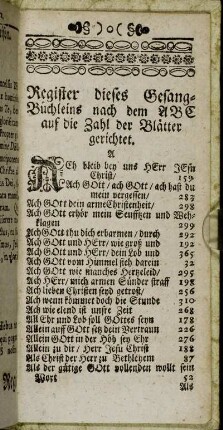 Register dieses Gesang-
Büchleins nach dem ABC
auf die Zahl der Blätter
gerichtet.
A
ACh bleib bey uns HErr JEsu
Christ/ 159
Ach GOtt / ach GOtt / ach hast du
mein vergessen/ 283
Ach GOTT dein arme Christenheit/ 298
Ach GOtt erhör mein Seufftzen und Weh-
klagen 299
Ach GOtt thu dich erbarmen / durch 292
Ach GOtt und HErr/ wie groß und 192
Ach GOtt und HErr/ dein Lob und 365
Ach GOtt vom Himmel sieh darein 32
Ach GOtt wie manches Hertzeleid/ 295
Ach HErr/ mich armen Sünder straff 198
Ach lieben Christen seyd getrost/ 256
Ach wenn kommet doch die Stunde 310
Ach wie elend ist unsre Zeit 268
All Ehr und Lob soll GOttes seyn 178
Allein auff GOtt setz dein Vertraun 226
Allein GOtt in der Höh sey Ehr 276
Allein zu dir / Herr Jesu Christ 188
Als Christ der Herr zu Bethlehem 87
Als der gütige GOtt vollenden wollt sein
Wort 52
Als